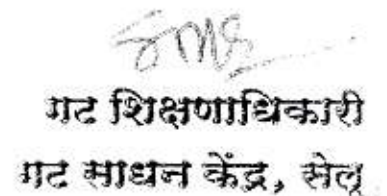 गट शिक्षणाधिकारी
गट साधन केंद्र, सेलू